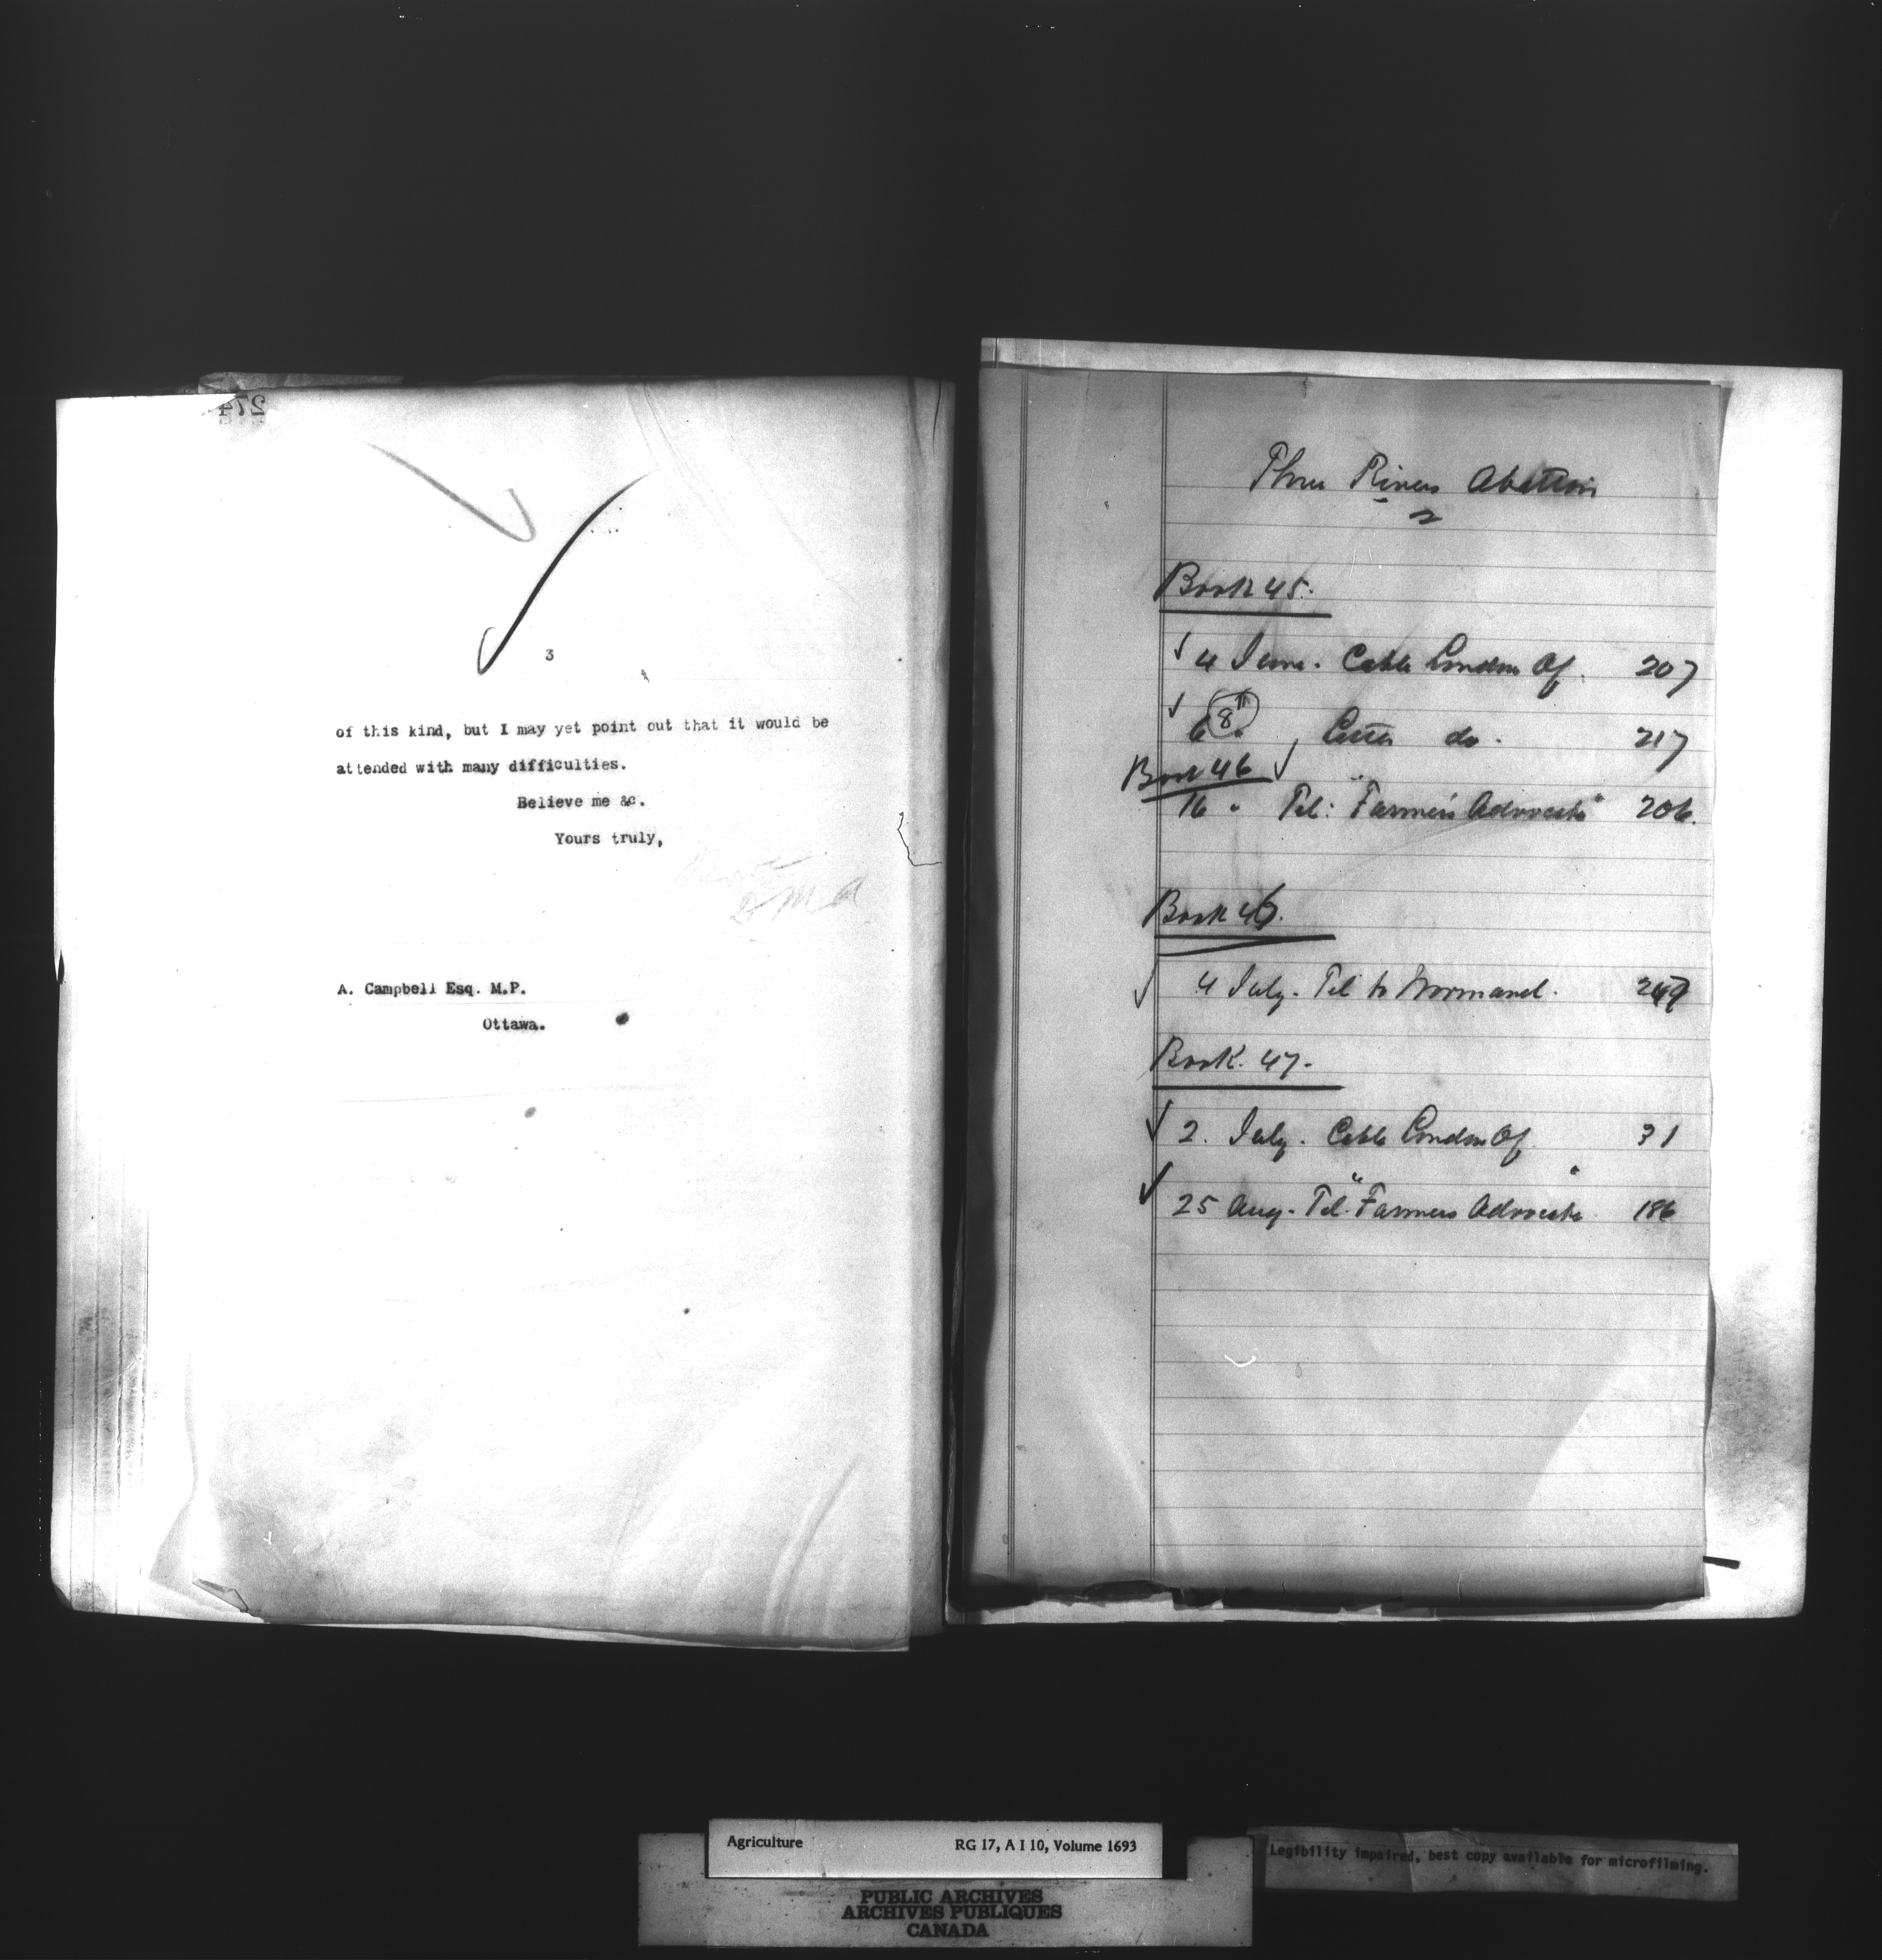 274
3
of this kind, but I may yet point out that it would be
attended with many difficulties.
Believe me &c.
Yours truly,
A. Campbell Esq. M.P.
Ottawa.
Three Rivers Abattoir
Book 45.
4 June. Cable London Of. 207
6 8 Letter do. 217
Book 46
16 " Tel: "Farmer's Advocate" 206.
Book 46.
4 July. Tel to Normand.
Book. 47.
2. July. Cable London Of 31
25 Aug. Tel. "Farmers Advocate" 186
Agriculture RG 17, A I 10, Volume 1693
Legibility impaired, best copy available for microfilming.
PUBLIC ARCHIVES
ARCHIVES PUBLIQUES
CANADA